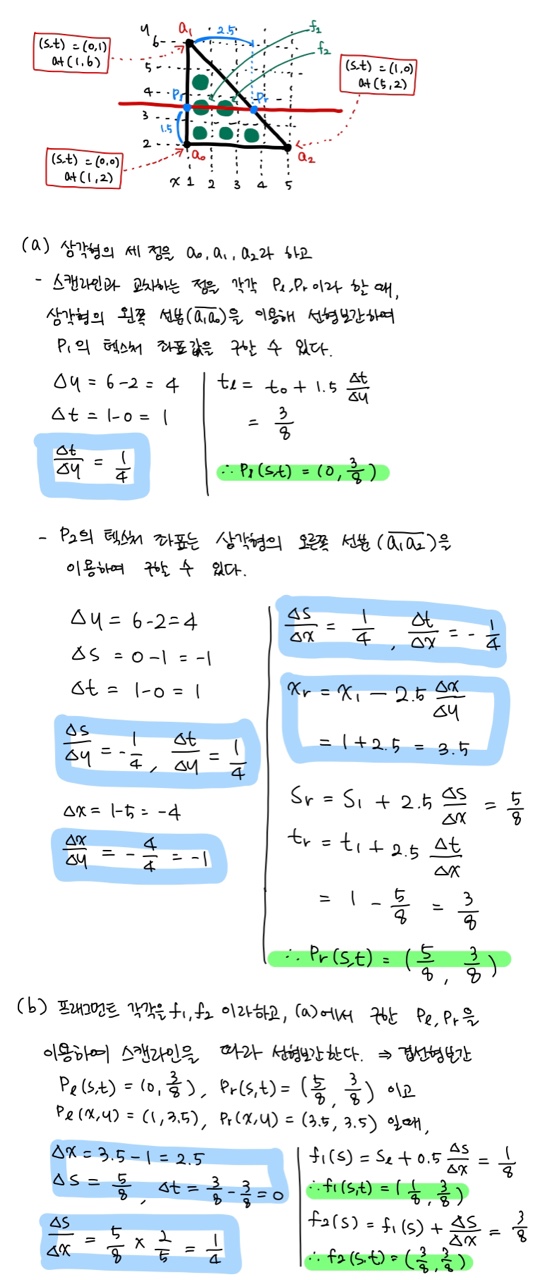 y
a₁
(s,t) = (0,1)
at (1,6)
2.5
f₁
f₂
6
5
4
3
2
(s,t) = (1,0)
at (5,2)
Pₗ
Pᵣ
1.5
a₀
a₂
(s,t) = (0,0)
at (1,2)
x 1 2 3 4 5
(a) 삼각형의 세 점을 a₀, a₁, a₂라 하고
- 스캔라인과 교차하는 점을 각각 Pₗ, Pᵣ이라 할 때,
삼각형의 왼쪽 선분(a₁a₀)을 이용해 선형보간하여
P₁의 텍스처 좌표값을 구할 수 있다.
Δy = 6-2 = 4
Δt = 1-0 = 1
Δt/Δy = 1/4
tₗ = t₀ + 1.5 Δt/Δy
= 3/8
∴ Pₗ(s,t) = (0, 3/8)
- P₂의 텍스처 좌표는 삼각형의 오른쪽 선분(a₁a₂)을
이용하여 구할 수 있다.
Δy = 6-2=4
Δs = 0-1 = -1
Δt = 1-0 = 1
Δs/Δy = -1/4, Δt/Δy = 1/4
Δx = 1-5 = -4
Δx/Δy = -4/4 = -1
Δs/Δx = 1/4, Δt/Δx = -1/4
xᵣ = x₁ - 2.5 Δx/Δy
= 1+2.5 = 3.5
Sᵣ = S₁ + 2.5 Δs/Δx = 5/8
tᵣ = t₁ + 2.5 Δt/Δx
= 1 - 5/8 = 3/8
∴ Pᵣ(s,t) = (5/8, 3/8)
(b) 프래그먼트 각각을 f₁, f₂ 이라하고, (a)에서 구한 Pₗ, Pᵣ을
이용하여 스캔라인을 따라 선형보간한다. ⇒ 겹선형보간
Pₗ(s,t) = (0, 3/8), Pᵣ(s,t) = (5/8, 3/8) 이고
Pₗ(x,y) = (1, 3.5), Pᵣ(x,y) = (3.5, 3.5) 일때,
Δx = 3.5 - 1 = 2.5
Δs = 5/8, Δt = 3/8 - 3/8 = 0
Δs/Δx = 5/8 × 2/5 = 1/4
f₁(s) = Sₗ + 0.5 Δs/Δx = 1/8
∴ f₁(s,t) = (1/8, 3/8)
f₂(s) = f₁(s) + Δs/Δx = 3/8
∴ f₂(s,t) = (3/8, 3/8)